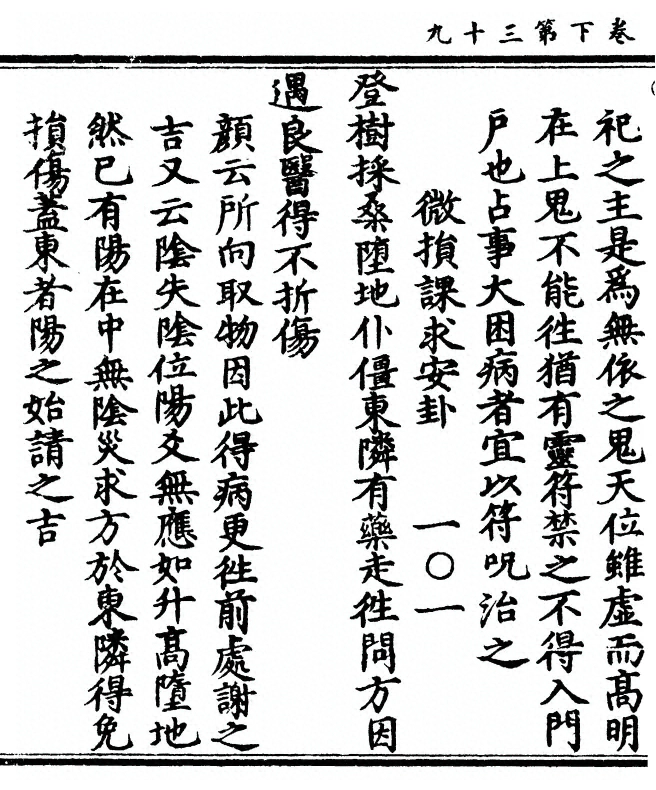 卷下第三十九
祀之主是爲無依之鬼天位雖虛而髙明
在上鬼不能徃猶有靈符禁之不得入門
戶也占事大困病者宜以符呪治之
微損課求安卦 一〇一
登樹採桑墮地仆僵東隣有藥走徃問方因
遇良醫得不折傷
顔云所向取物因此得病更徃前處謝之
吉又云陰失陰位陽爻無應如升髙墮地
然巳有陽在中無陰災求方於東隣得免
損傷蓋東者陽之始請之吉